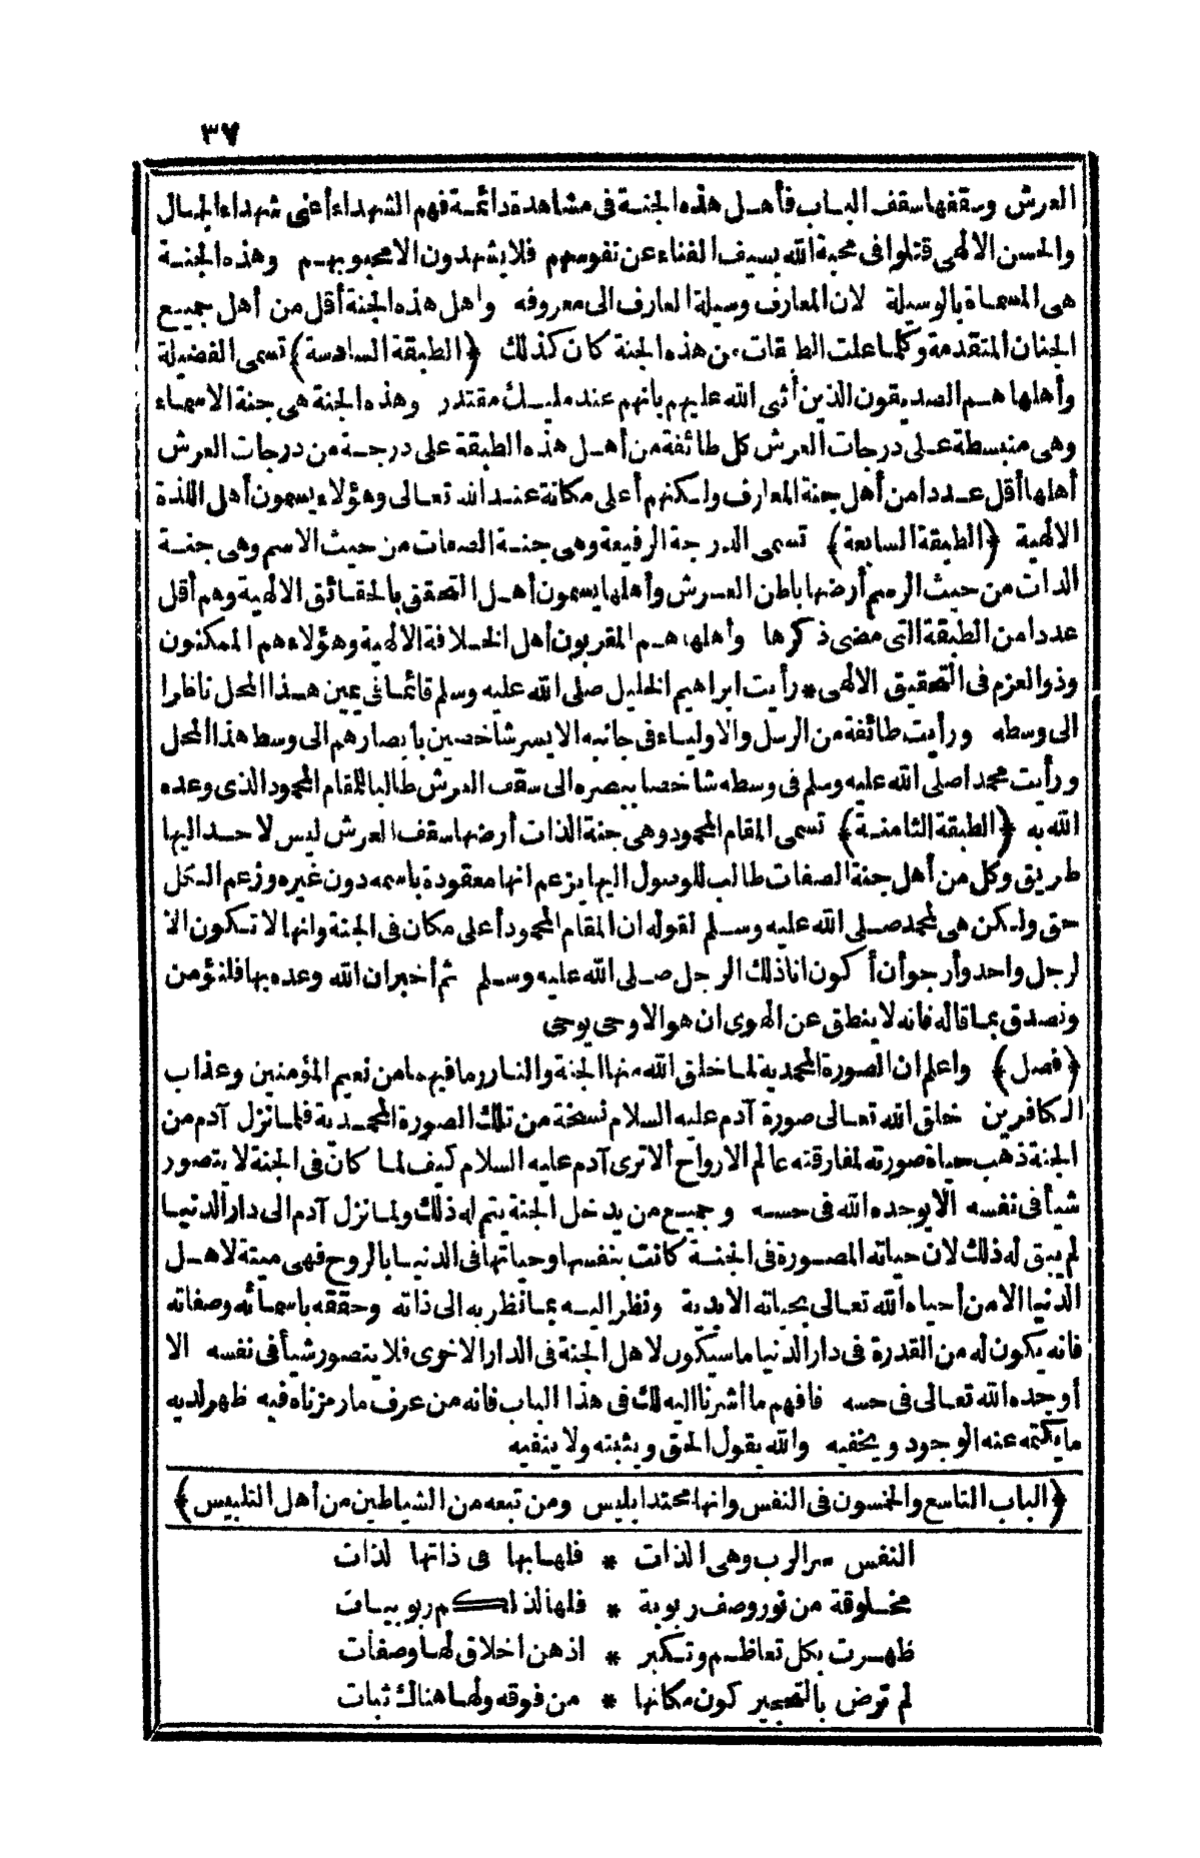 ٣٧
العرش وسقفها سقف الباب فأهل هذه الجنة فى مشاهدة دائمة فهم الشهداء أعنى شهداء الجمال
والحسن الالهى قتلوا فى محبة الله بسيف الفناء عن نفوسهم فلا يشهدون الا محبوبهم وهذه الجنة
هى المسماة بالوسيلة لان المعارف وسيلة العارف الى معروفه واهل هذه الجنة أقل من أهل جميع
الجنان المتقدمة وكلما علت الطبقات من هذه الجنة كان كذلك ﴿الطبقة السادسة﴾ تسمى الفضيلة
وأهلها هم الصديقون الذين أثنى الله عليهم بانهم عند مليك مقتدر وهذه الجنة هى جنة الاسماء
وهى منبسطة على درجات العرش كل طائفة من أهل هذه الطبقة على درجة من درجات العرش
أهلها أقل عددا من أهل جنة المعارف ولكنهم أعلى مكانة عند الله تعالى وهؤلاء يسمون أهل اللذة
الالهية ﴿الطبقة السابعة﴾ تسمى الدرجة الرفيعة وهى جنة الصفات من حيث الاسم وهى جنة
الذات من حيث الرسم أرضها باطن العرش وأهلها يسمون أهل التحقق بالحقائق الالهية وهم أقل
عددا من الطبقة التى مضى ذكرها وأهلها هم المقربون أهل الخلافة الالهية وهؤلاء هم الممكنون
وذو العزم فى التحقيق الالهى * رأيت ابراهيم الخليل صلى الله عليه وسلم قائما فى يمين هذا المحل ناظرا
الى وسطه ورأيت طائفة من الرسل والاولياء فى جانبه الايسر شاخصين بابصارهم الى وسط هذا المحل
ورأيت محمدا صلى الله عليه وسلم فى وسطه شاخصا ببصره الى سقف العرش طالبا للمقام المحمود الذى وعده
الله به ﴿الطبقة الثامنة﴾ تسمى المقام المحمود وهى جنة الذات أرضها سقف العرش ليس لاحد اليها
طريق وكل من أهل جنة الصفات طالب للوصول اليها يزعم انها معقودة باسمه دون غيره وزعم الكل
حق ولكن هى لمحمد صلى الله عليه وسلم لقوله ان المقام المحمود أعلى مكان فى الجنة وانها لا تكون الا
لرجل واحد وأرجو أن أكون انا ذلك الرجل صلى الله عليه وسلم ثم أخبر ان الله وعده بها فلنؤمن
ونصدق بما قاله فانه لا ينطق عن الهوى ان هو الا وحى يوحى
﴿فصل﴾ واعلم ان الصورة المحمدية لما خلق الله منها الجنة والنار وما فيهما من نعيم المؤمنين وعذاب
الكافرين خلق الله تعالى صورة آدم عليه السلام نسخة من تلك الصورة المحمدية فلما نزل آدم من
الجنة ذهب حياة صورته لمفارقته عالم الارواح ألا ترى آدم عليه السلام كيف لما كان فى الجنة لا يتصور
شيأ فى نفسه الا يوجده الله فى حسه وجميع من يدخل الجنة يتم له ذلك ولما نزل آدم الى دار الدنيا
لم يبق له ذلك لان حياته المصورة فى الجنة كانت بنفسها وحياتها فى الدنيا بالروح فهى ميتة لاهل
الدنيا الا من أحياه الله تعالى بحياته الابدية ونظر اليه بما نظر به الى ذاته وحققه باسمائه وصفاته
فانه يكون له من القدرة فى دار الدنيا ما سيكون لاهل الجنة فى الدار الاخرى فلا يتصور شيأ فى نفسه الا
أوجده الله تعالى فى حسه فافهم ما أشرنا اليه لك فى هذا الباب فانه من عرف ما رمزناه فيه ظهر لديه
ما يكتمه عنه الوجود ويخفيه والله يقول الحق ويثبته ولا ينفيه
﴿الباب التاسع والخمسون فى النفس وانها محتد ابليس ومن تبعه من الشياطين من أهل التلبيس﴾
النفس سر الرب وهى الذات * فلها بها فى ذاتها لذات
مخلوقة من نور وصف ربوبة * فلها لذلكم ربوبيات
ظهرت بكل تعاظم وتكبر * اذ هن اخلاق لها وصفات
لم ترض بالتحجير كون مكانها * من فوقه ولها هناك ثبات